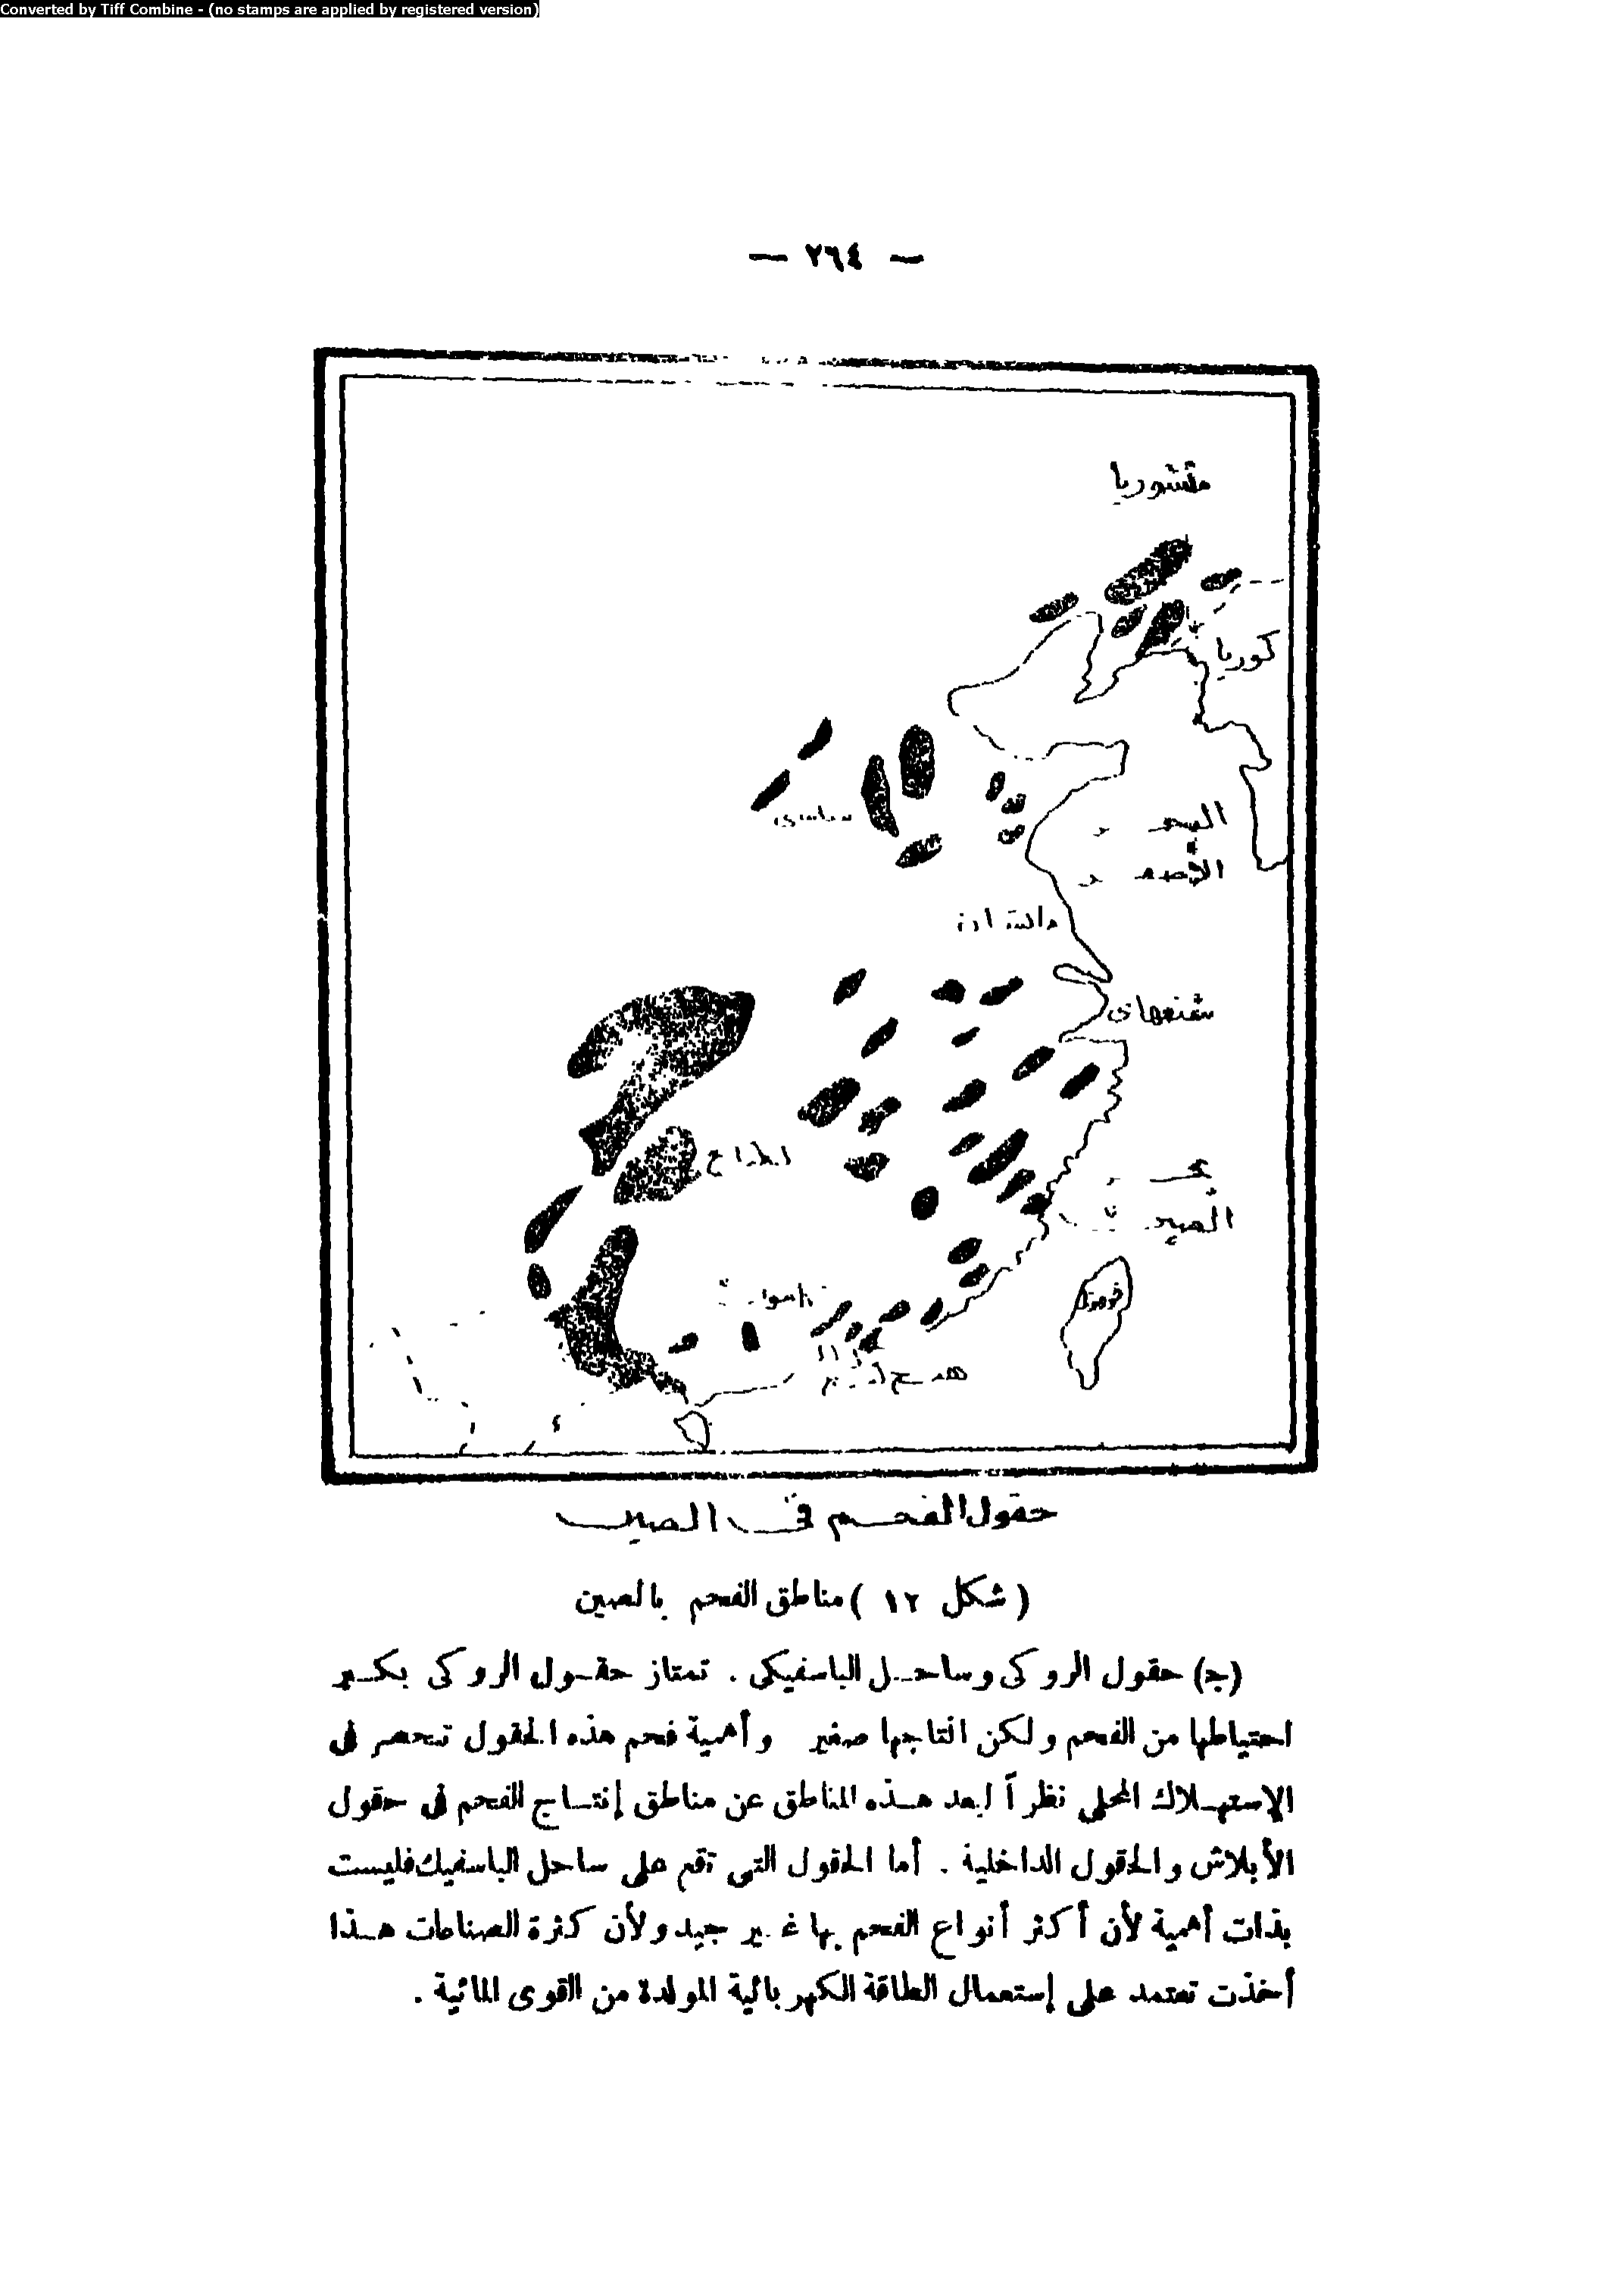 Converted by Tiff Combine - (no stamps are applied by registered version)
— ٢٦٤ —
منشوريا
كوريا
البحر
الأصفر
شنغهاى
بحر
الصين
فرموزا
حقول الفحم فى الصين
( شكل ١٢ ) مناطق الفحم بالصين
(ج) حقول الروكى وساحل الباسفيكى . تمتاز حقول الروكى بكبر
احتياطها من الفحم ولكن انتاجها صغير وأهمية فحم هذه الحقول تنحصر فى
الإستهلاك المحلى نظراً لبعد هذه المناطق عن مناطق إنتاج الفحم فى حقول
الأبلاش والحقول الداخلية . أما الحقول التى تقع على ساحل الباسفيك فليست
بذات أهمية لأن أكثر أنواع الفحم بها غير جيد ولأن كثرة الصناعات هذا
أخذت تعتمد على إستعمال الطاقة الكهربائية المولدة من القوى المائية .